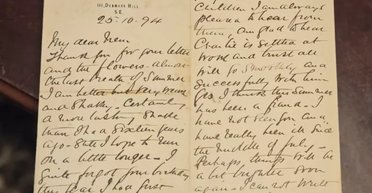 111, Denmark Hill
S.E.
25.10.94
My dear
Thank you for your letter
and the flowers almost
the last breath of Summer
I am better but very
and shaky. Certainly
a more shaky
than I had Sixteen years
ago. Still I hope to run
on a little longer. I
quite forgot your birthday
this year I had just
Children I am always
pleased to hear from
them, am glad to hear
Charlie is settled at
work and trust all
will go smoothly and
successfully with him
I think this Summer
has been a fraud. I
have not been
have really been ill since
the middle of July.
Perhaps things will be
a bit brighter soon
again. I can not write